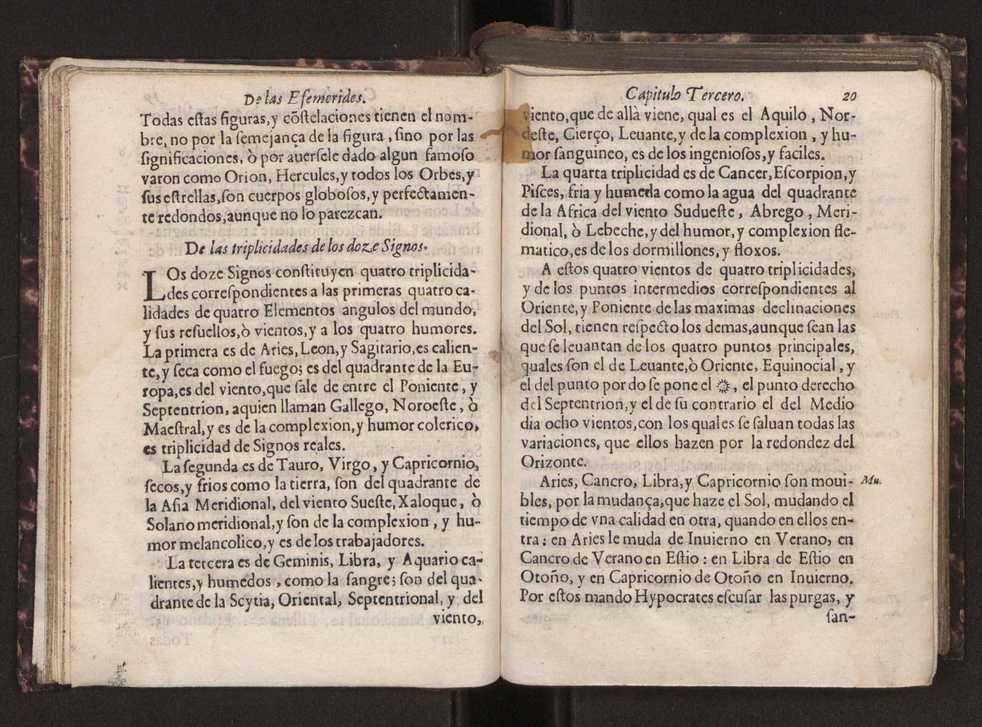 De las Efemerides.
Todas eſtas figuras,y cõſtelaciones tienen el nom-
bre, no por la ſemejança de la figura , ſino por las
ſignificaciones, ò por auerſele dado algun famoſo
varon como Orion, Hercules,y todos los Orbes,y
ſus eſtrellas,ſon cuerpos globoſos,y perfectamen-
te redondos,aunque no lo parezcan.
De las triplicidades de los doze Signos.
LOs doze Signos conſtituyen quatro triplicida-
des correſpondientes a las primeras quatro ca-
lidades de quatro Elementos angulos del mundo,
y ſus reſuellos,ò vientos,y a los quatro humores.
La primera es de Aries, Leon,y Sagitario,es calien-
te,y ſeca como el fuego; es del quadrante de la Eu-
ropa,es del viento,que ſale de entre el Poniente , y
Septentrion, aquien llaman Gallego, Noroeſte , ò
Maeſtral,y es de la complexion,y humor colerico,
es triplicidad de Signos reales.
La ſegunda es de Tauro, Virgo , y Capricornio,
ſecos,y frios como la tierra, ſon del quadrante de
la Aſia Meridional, del viento Sueſte, Xaloque , ò
Solano meridional,y ſon de la complexion , y hu-
mor melancolico,y es de los trabajadores.
La tercera es de Geminis, Libra, y Aquario ca-
lientes,y humedos , como la ſangre; ſon del qua-
drante de la Scytia, Oriental, Septentrional, y del
viento,
Capitulo Tercero. 20
viento,que de allà viene, qual es el Aquilo , Nor-
deſte, Cierço, Leuante,y de la complexion , y hu-
mor ſanguineo, es de los ingenioſos,y faciles.
La quarta triplicidad es de Cancer,Eſcorpion,y
Piſces, fria y humeda como la agua del quadrante
de la Africa del viento Sudueſte , Abrego , Meri-
dional, ò Lebeche,y del humor,y complexion fle-
matico,es de los dormillones, y floxos.
A eſtos quatro vientos de quatro triplicidades,
y de los puntos intermedios correſpondientes al
Oriente,y Poniente de las maximas declinaciones
del Sol, tienen reſpecto los demas,aunque ſean las
que ſe leuantan de los quatro puntos principales,
quales ſon el de Leuante,ò Oriente, Equinocial , y
el del punto por do ſe pone el ☼, el punto derecho
del Septentrion,y el de ſu contrario el del Medio
dia ocho vientos,con los quales ſe ſaluan todas las
variaciones, que ellos hazen por la redondez del
Orizonte.
Aries, Cancro, Libra,y Capricornio ſon moui- Mu.
bles, por la mudança,que haze el Sol, mudando el
tiempo de vna calidad en otra, quando en ellos en-
tra: en Aries le muda de Inuierno en Verano, en
Cancro de Verano en Eſtio : en Libra de Eſtio en
Otoño, y en Capricornio de Otoño en Inuierno.
Por eſtos mando Hypocrates eſcuſar las purgas, y
ſan-